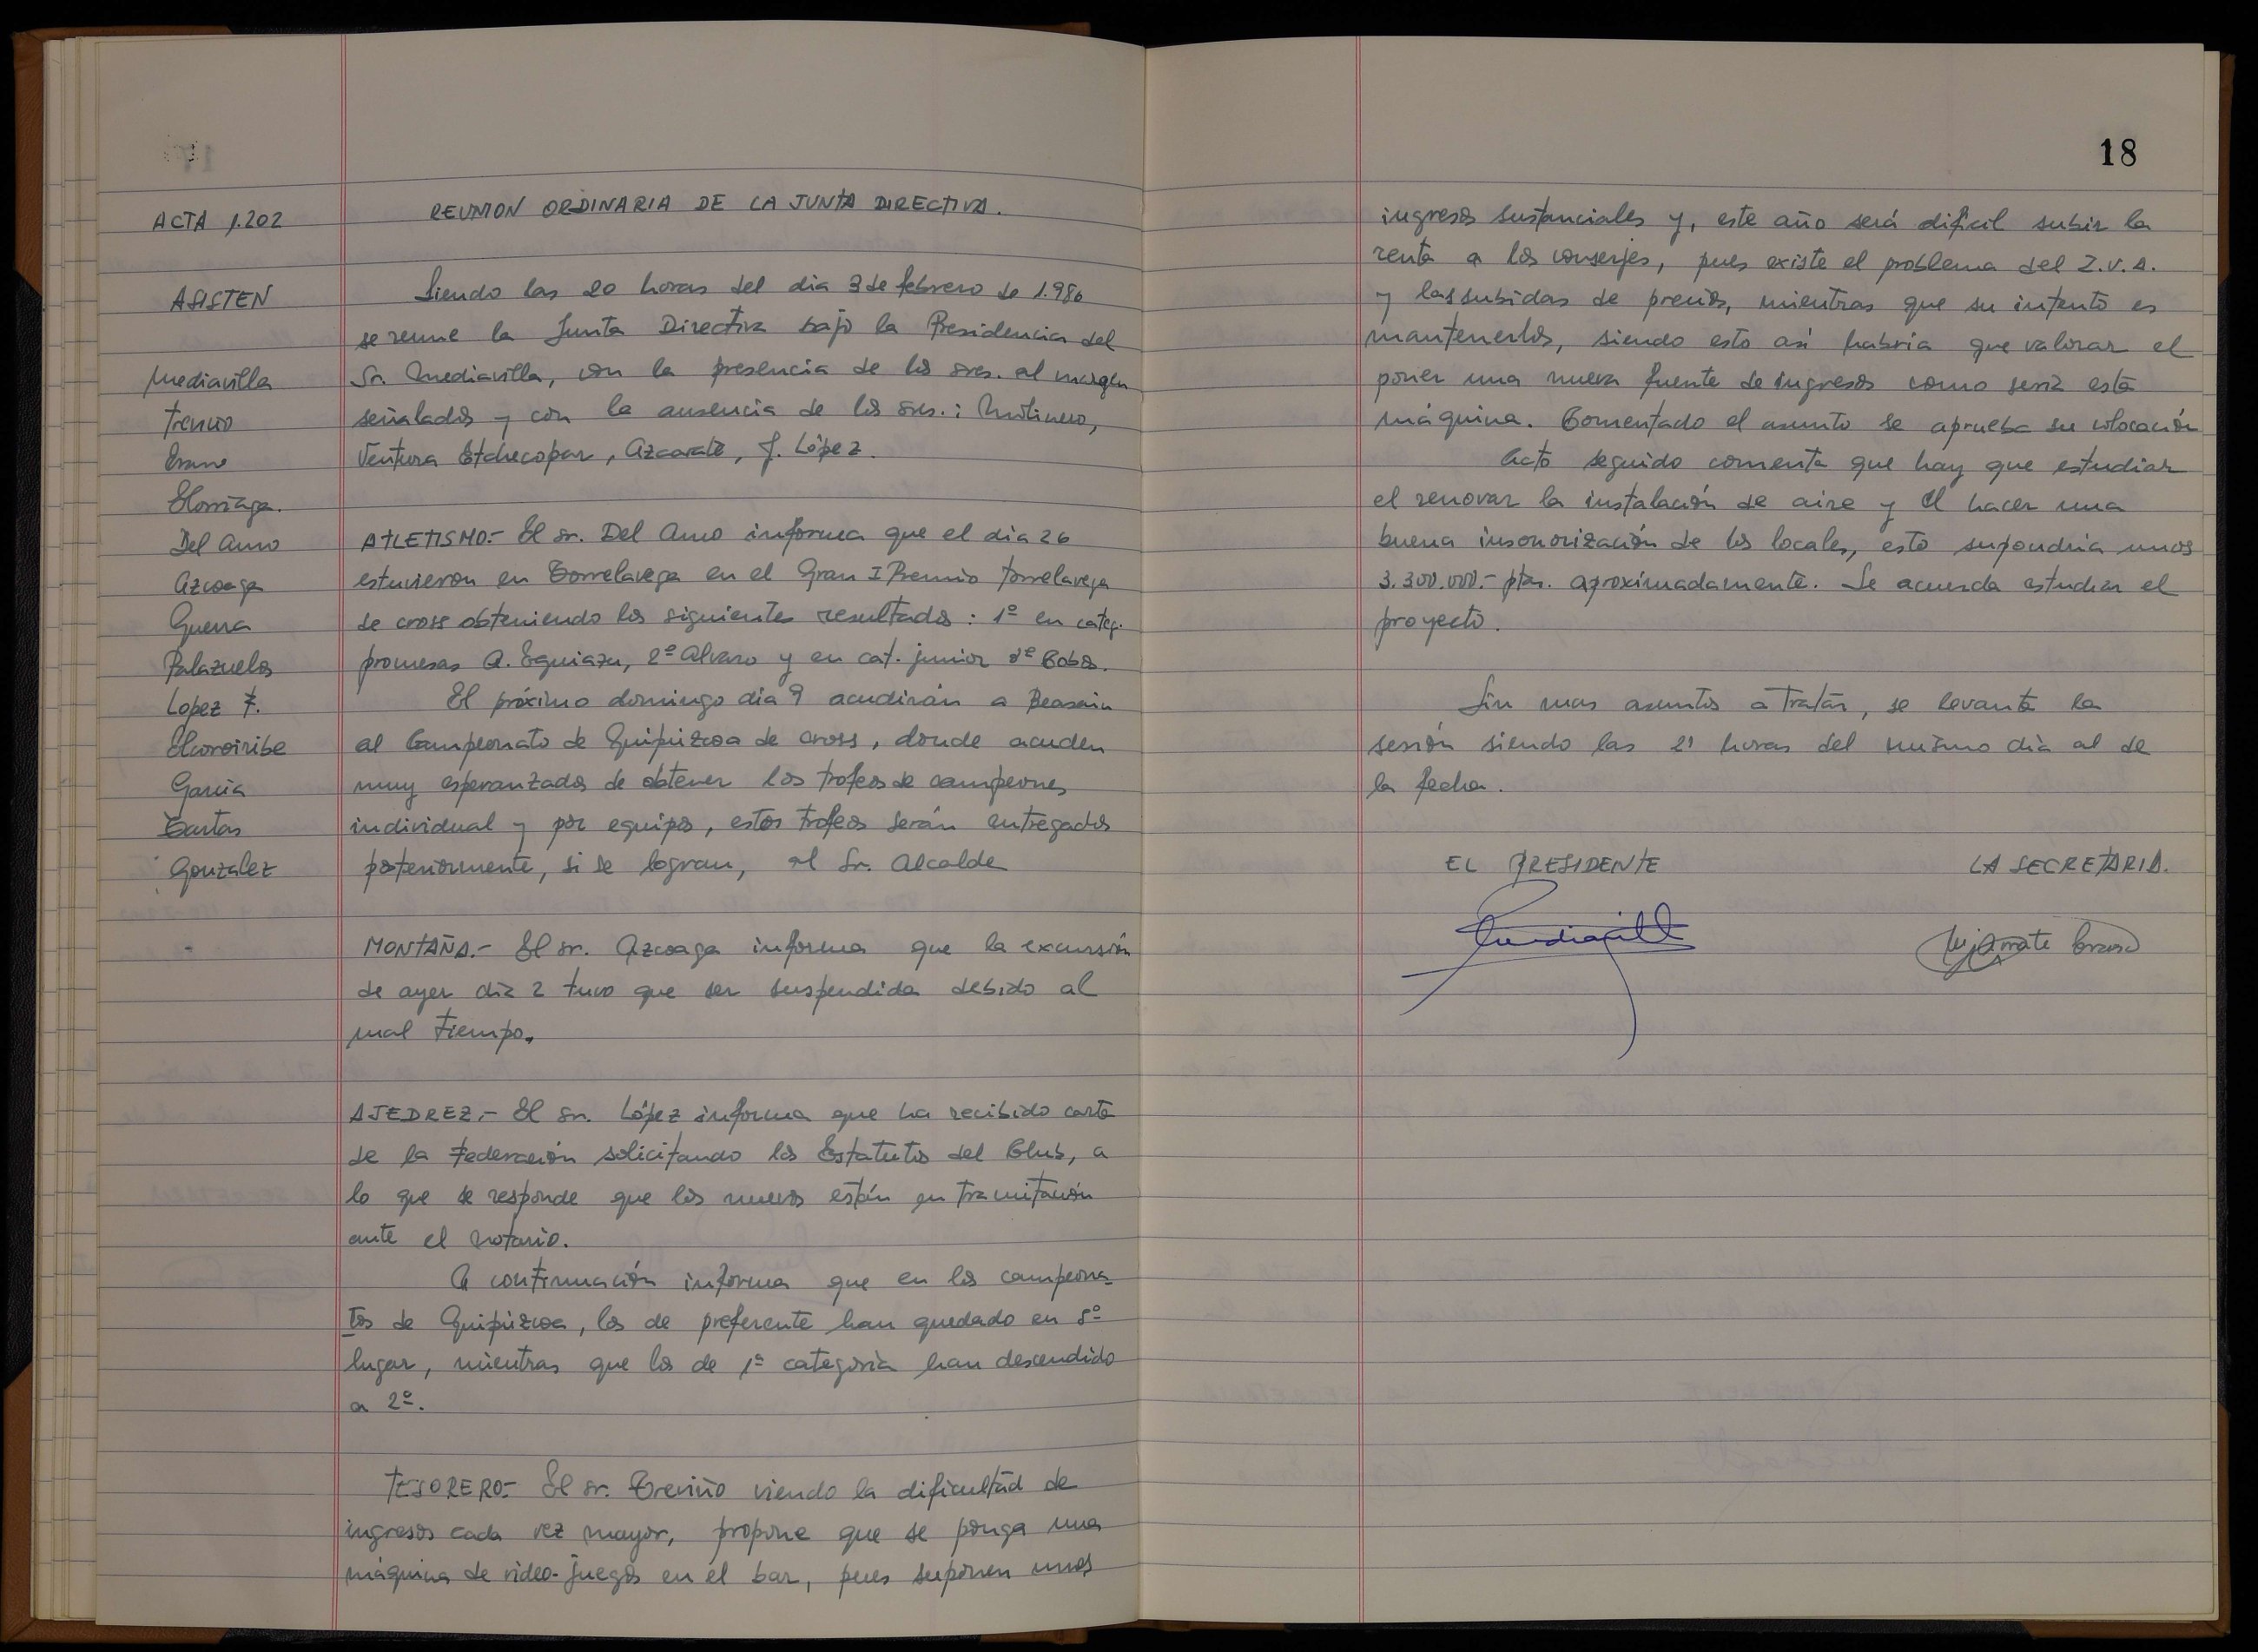 ACTA 1.202
REUNION ORDINARIA DE LA JUNTA DIRECTIVA.
ASISTEN
Mediavilla
Elorriaga.
Del Amo
Azcoaga
Guerra
Palazuelos
Lopez F.
Elcoroiribe
Garcia
Gonzalez
Siendo las 20 horas del dia 3 de febrero de 1.986
se reune la Junta Directiva bajo la Presidencia del
Sr. Mediavilla, con la presencia de los sres. al margen
señalados y con la ausencia de los sres.: Molinero,
Ventura Etchecopar, Azcarate, J. López.
ATLETISMO.- El sr. Del Amo informa que el dia 26
estuvieron en Torrelavega en el Gran I Premio Torrelavega
de cross obteniendo los siguientes resultados: 1º en categ.
promesas A. Eguiazu, 2º Alvaro y en cat. junior Cobos.
El próximo domingo dia 9 acudirán a Beasain
al Campeonato de Guipúzcoa de cross, donde acuden
muy esperanzados de obtener los trofeos de campeones
individual y por equipos, estos trofeos serán entregados
posteriormente, si se logran, al Sr. Alcalde
MONTAÑA.- El sr. Azcoaga informa que la excursión
de ayer dia 2 tuvo que ser suspendida debido al
mal tiempo.
AJEDREZ.- El sr. López informa que ha recibido carta
de la Federación solicitando los Estatutos del Club, a
lo que se responde que los nuevos están en tramitación
ante el notario.
A continuación informa que en los campeona-
tos de Guipúzcoa, los de preferente han quedado en
lugar, mientras que los de 1ª categoria han descendido
a 2ª.
TESORERO.- El sr. Treviño viendo la dificultad de
ingresos cada vez mayor, propone que se ponga una
máquina de video-juegos en el bar, pues suponen unos
18
ingresos sustanciales y, este año será dificil subir la
renta a los conserjes, pues existe el problema del I.V.A.
y las subidas de precios, mientras que su intento es
mantenerlos, siendo esto asi habria que valorar el
poner una nueva fuente de ingresos como seria esta
máquina. Comentado el asunto se aprueba su colocación
Acto seguido comenta que hay que estudiar
el renovar la instalación de aire y el hacer una
buena insonorización de los locales, esto supondria unos
3.300.000.- ptas. aproximadamente. Se acuerda estudiar el
proyecto.
Sin mas asuntos a tratar, se levanta la
sesión siendo las 21 horas del mismo dia al de
la fecha.
EL PRESIDENTE
LA SECRETARIA.